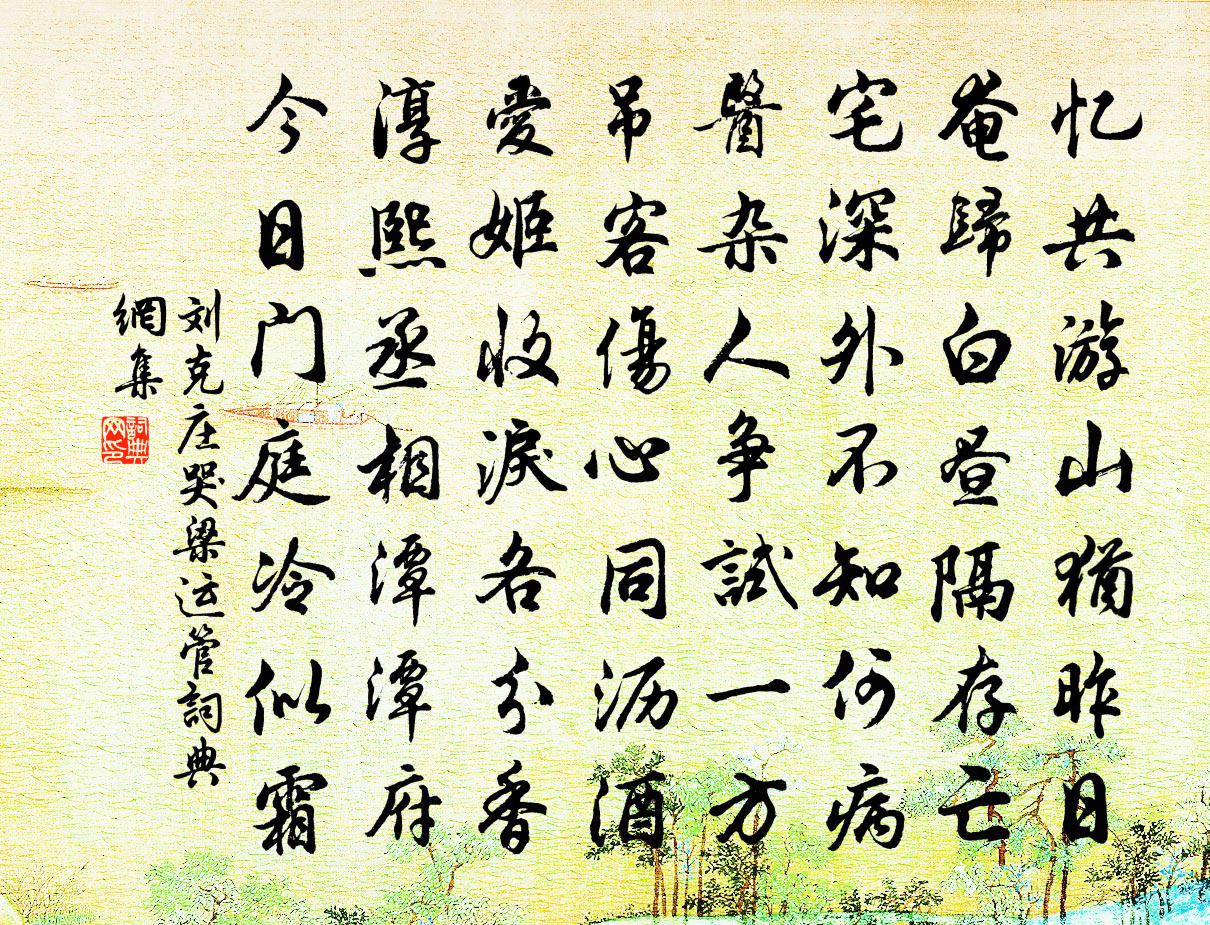 忆共游山犹昨日
奄歸白昼隔存亡
宅深外不知何病
醫杂人争試一方
吊客傷心同沥酒
愛姬收淚各分香
淳熙丞相潭潭府
今日门庭冷似霜
刘克庄哭梁运管詞典
網集
詞典
网印